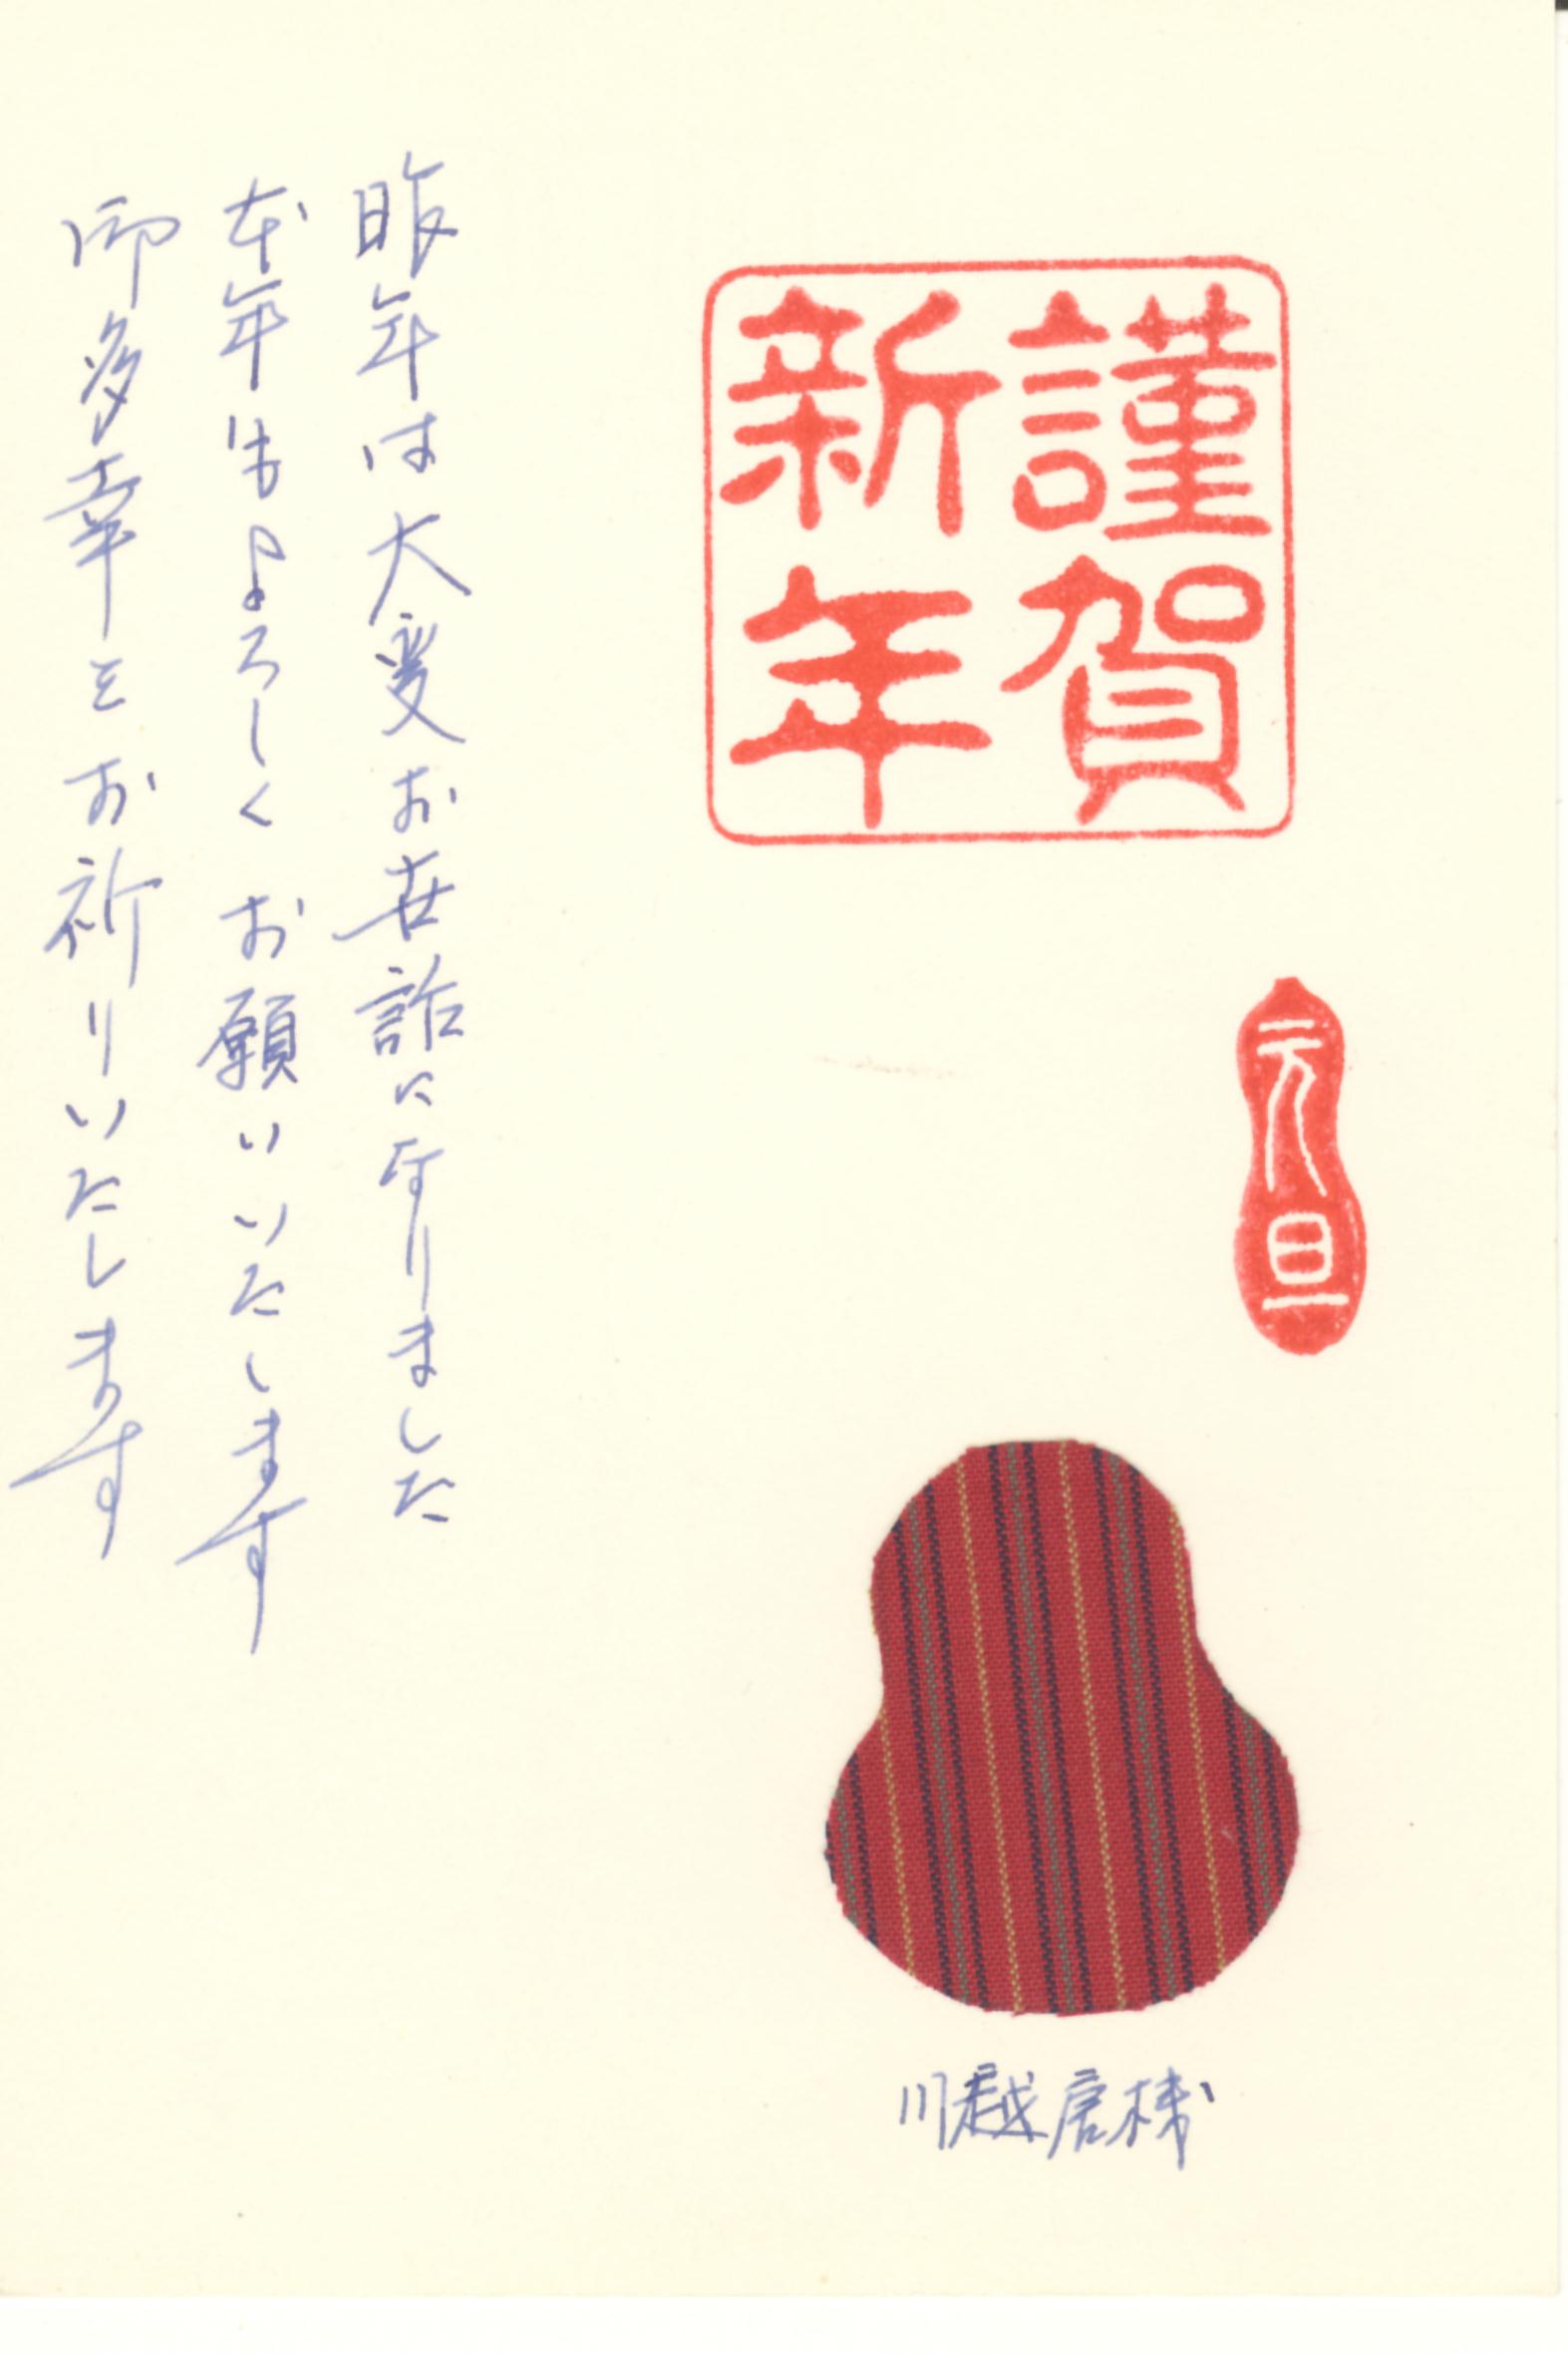 謹賀
新年
元旦
昨年は大変お世話になりました
本年もよろしくお願いいたします
御多幸をお祈りいたします
川越唐桟